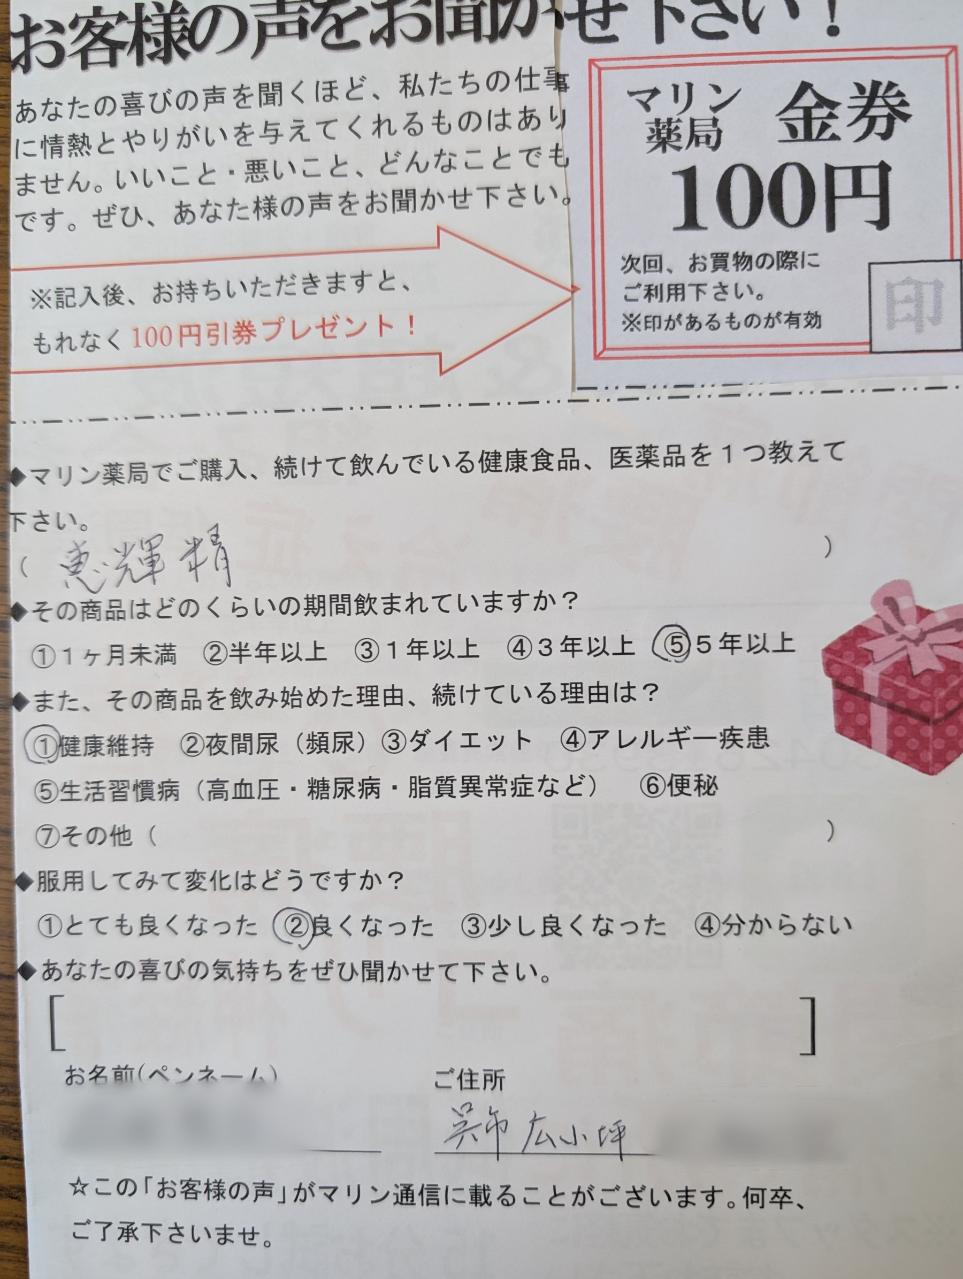 お客様の声をお聞かせ下さい！
あなたの喜びの声を聞くほど、私たちの仕事
に情熱とやりがいを与えてくれるものはあり
ません。いいこと・悪いこと、どんなことでも
です。ぜひ、あなた様の声をお聞かせ下さい。
※記入後、お持ちいただきますと、
もれなく100円引券プレゼント！
マリン
薬局
金券
100円
次回、お買物の際に
ご利用下さい。
※印があるものが有効
印
◆マリン薬局でご購入、続けて飲んでいる健康食品、医薬品を１つ教えて
下さい。
（ 恵輝精 ）
◆その商品はどのくらいの期間飲まれていますか？
①１ヶ月未満 ②半年以上 ③１年以上 ④３年以上 ⑤５年以上
◆また、その商品を飲み始めた理由、続けている理由は？
①健康維持 ②夜間尿（頻尿）③ダイエット ④アレルギー疾患
⑤生活習慣病（高血圧・糖尿病・脂質異常症など） ⑥便秘
⑦その他（ ）
◆服用してみて変化はどうですか？
①とても良くなった ②良くなった ③少し良くなった ④分からない
◆あなたの喜びの気持ちをぜひ聞かせて下さい。
［ ］
お名前(ペンネーム) ご住所
呉市広小坪
☆この「お客様の声」がマリン通信に載ることがございます。何卒、
ご了承下さいませ。